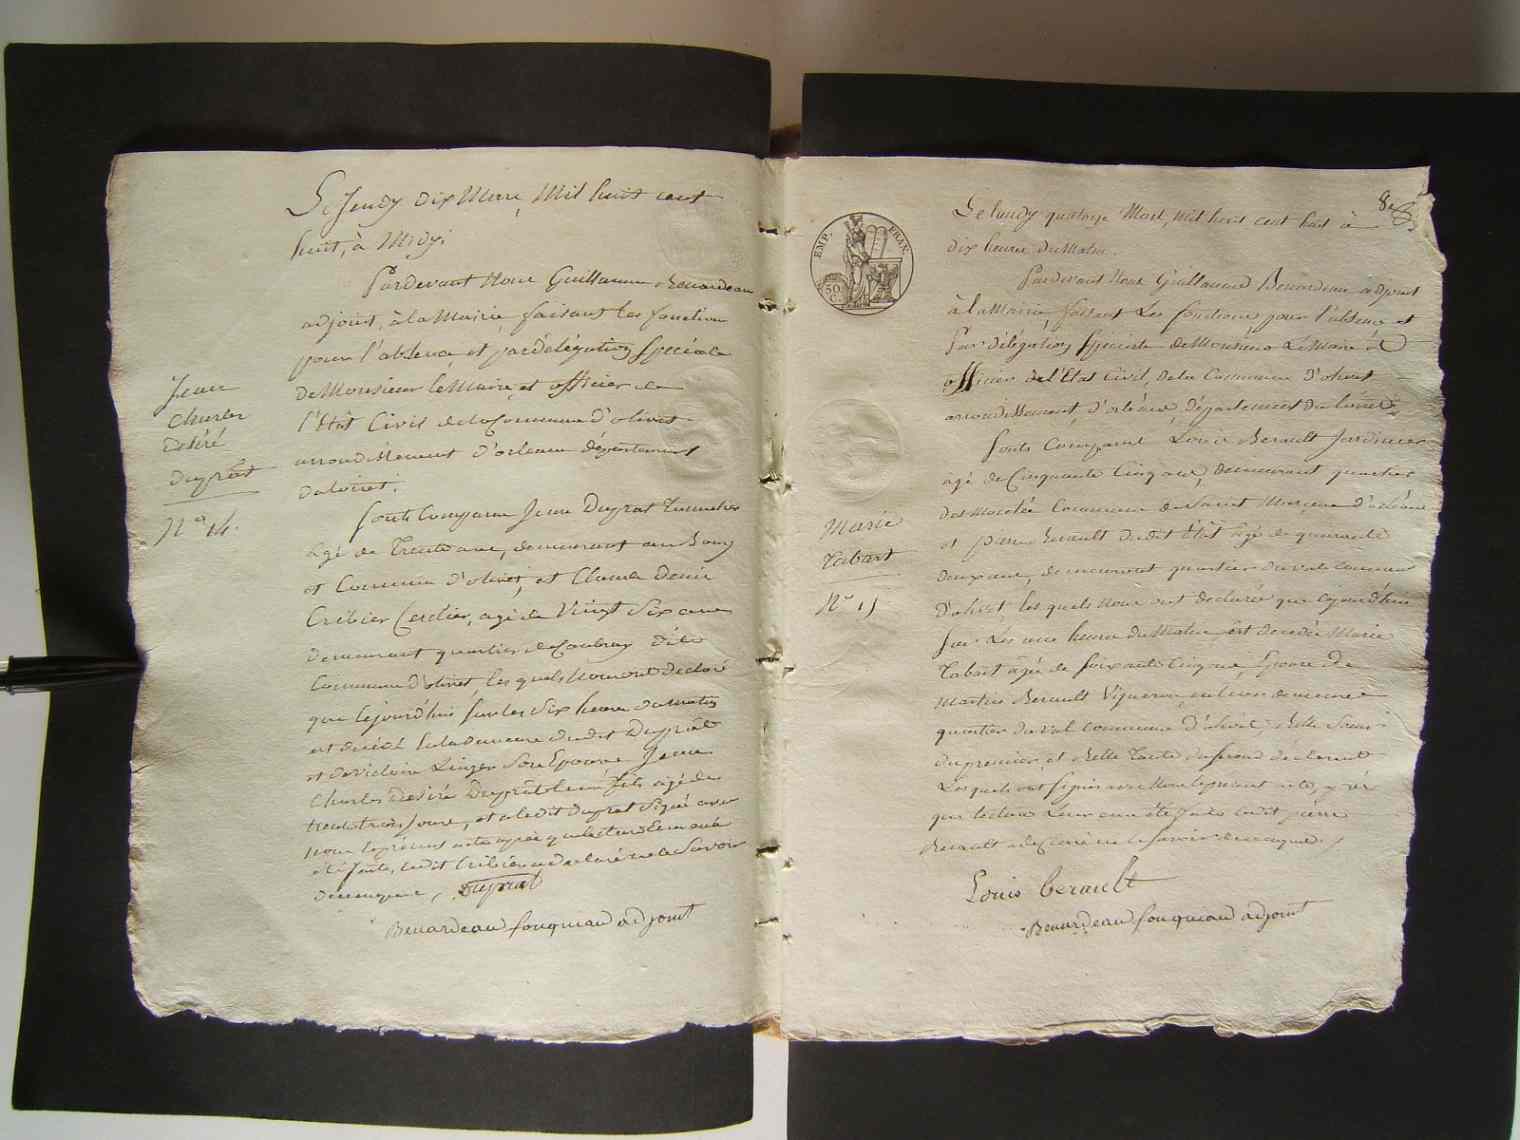 Le Jeudy dix Mars, Mil huit cent
huit, à Midy.
Pardevant Nous Guillaume Benardeau
adjoint, à la Mairie faisant les fonction
pour l'absence et par délégation Spéciale
De Monsieur le Maire, et officier de
l'Etat Civil de la Commune d'olivet
arrondissement d'orleans département
du loiret.
Jean
Charles
Désiré
Duprat
No 14.
sont Comparu Jean Duprat Tonnelier
agé de Trente ans, demeurant au Bourg
et Commune d'olivet, et Claude Denis
Cribier Cerclier, agé de Vingt Six ans
Demeurant quartier de Coubray dite
Commune d'olivet, les quels Nous ont declaré
que Cejourd'hui sur les Six heures du Matin
est décédé en la demeure du dit Duprat
et de Victoire Linger Son Epouse Jean
Charles Désiré Duprat leur fils agé de
trente trois Jours, et a le dit Duprat Signé avec
nous le présent acte après que lecture Leur en a
été faite, le dit Cribier a declaré ne le Savoir
de ce enquis, Duprat
Benardeau fouqueau adjoint
8e 8
EMP. FRAN.
50 C.
Le lundy quatorze Mars, mil huit cent huit à
dix heures du Matin.
Pardevant Nous Guillaume Benardeau adjoint
à la Mairie faisant Les fonctions pour l'absence et
Par délégation Spéciale de Monsieur Le Maire et
officier de l'Etat Civil, de la Commune d'olivet
arrondissement d'orléans, département du loiret,
Sont Comparus Louis Berault Jardinier
agé de Cinquante Cinq ans, demeurant quartier
Commune de Saint Marceau d'orléans
et pierre Berault du dit Etat agé de quarante
deux ans, demeurant quartier du val commune
D'olivet, les quels Nous ont declarés que cejourd'hui
Sur Les une heure du Matin est decedée Marie
Tabart agée de soixante Cinq ans, Epouse de
Martin Berault Vigneron, en leur demeure
quartier du val commune d'olivet, Belle Soeur
du premier, et Belle Tante du second déclarant
Les quels ont signés avec Nous le présent acte, après
que lecture Leur en a été faite le dit pierre
Berault a declaré ne le savoir de ce enquis.
Marie
Tabart
No 15
Louis Berault
Benardeau fouqueau adjoint